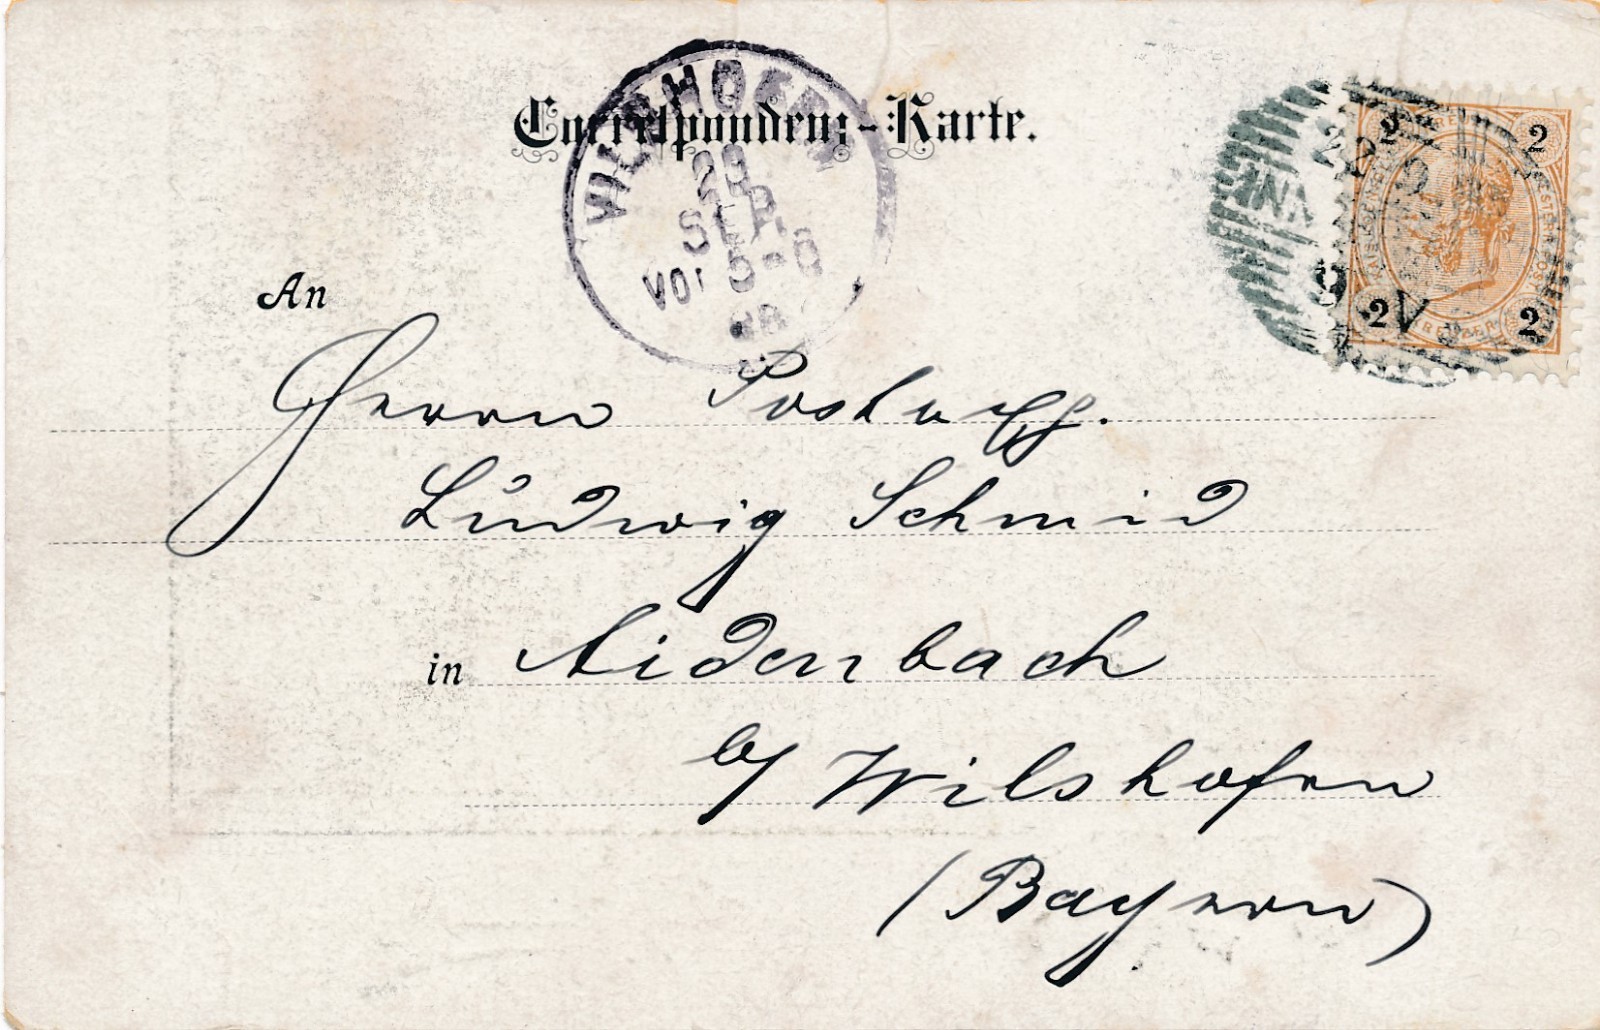 Correspondenz-Karte.
VILSHOFEN
29
SEP.
VOR 5-6
98
22
9
9
V
2 2
2 2
KREUZER
An
Herrn
Ludwig Schmid
in Aidenbach
b/ Wilshofen
(Bayern)